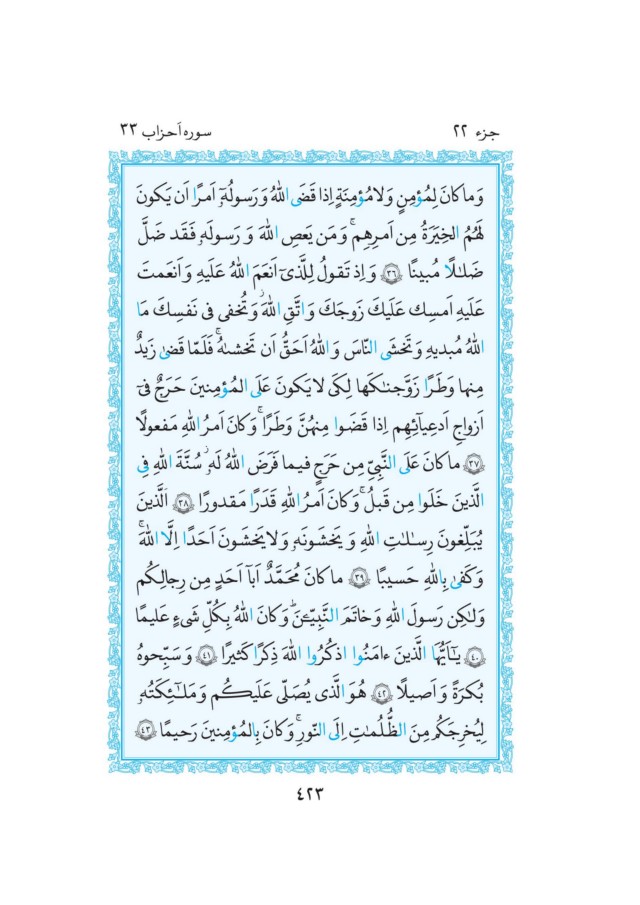 جزء ۲۲
سوره احزاب ۳۳
وَما كانَ لِمُؤمِنٍ وَلا مُؤمِنَةٍ اِذا قَضَى اللّٰهُ وَ رَسولُهُۥٓ اَمرًا اَن يَكونَ
لَهُمُ الخِيَرَةُ مِن اَمرِهِم ۗ وَ مَن يَعصِ اللّٰهَ وَ رَسولَهُۥ فَقَد ضَلَّ
ضَلٰلًا مُبينًا ﴿۳۶﴾ وَ اِذ تَقولُ لِلَّذىٓ اَنعَمَ اللّٰهُ عَلَيهِ وَ اَنعَمتَ
عَلَيهِ اَمسِك عَلَيكَ زَوجَكَ وَ اتَّقِ اللّٰهَۖ وَ تُخفى فى نَفسِكَ مَا
اللّٰهُ مُبديهِ وَ تَخشَى النّاسَ وَ اللّٰهُ اَحَقُّ اَن تَخشىٰهُ ۖ فَلَمّا قَضىٰ زَيدٌ
مِنها وَطَرًا زَوَّجنٰكَها لِكَى لا يَكونَ عَلَى المُؤمِنينَ حَرَجٌ فىٓ
اَزواجِ اَدعِيآئِهِم اِذا قَضَوا مِنهُنَّ وَطَرًا ۚ وَ كانَ اَمرُ اللّٰهِ مَفعولًا
﴿۳۷﴾ ما كانَ عَلَى النَّبِىِّ مِن حَرَجٍ فيما فَرَضَ اللّٰهُ لَهُۥ ۖ سُنَّةَ اللّٰهِ فِى
الَّذينَ خَلَوا مِن قَبلُ ۚ وَ كانَ اَمرُ اللّٰهِ قَدَرًا مَقدورًا ﴿۳۸﴾ اَلَّذينَ
يُبَلِّغونَ رِسٰلٰتِ اللّٰهِ وَ يَخشَونَهُۥ وَ لا يَخشَونَ اَحَدًا اِلَّا اللّٰهَ ۗ
وَ كَفىٰ بِاللّٰهِ حَسيبًا ﴿۳۹﴾ ما كانَ مُحَمَّدٌ اَبآ اَحَدٍ مِن رِجالِكُم
وَلٰكِن رَسولَ اللّٰهِ وَ خاتَمَ النَّبِيّۦنَ ۗ وَ كانَ اللّٰهُ بِكُلِّ شَىءٍ عَليمًا
﴿۴۰﴾ يٰٓاَيُّهَا الَّذينَ ءامَنُوا اذكُرُوا اللّٰهَ ذِكرًا كَثيرًا ﴿۴۱﴾ وَ سَبِّحوهُ
بُكرَةً وَ اَصيلًا ﴿۴۲﴾ هُوَ الَّذى يُصَلّى عَلَيكُم وَ مَلٰٓئِكَتُهُۥ
لِيُخرِجَكُم مِنَ الظُّلُمٰتِ اِلَى النّورِ ۚ وَ كانَ بِالمُؤمِنينَ رَحيمًا ﴿۴۳﴾
۴۲۳